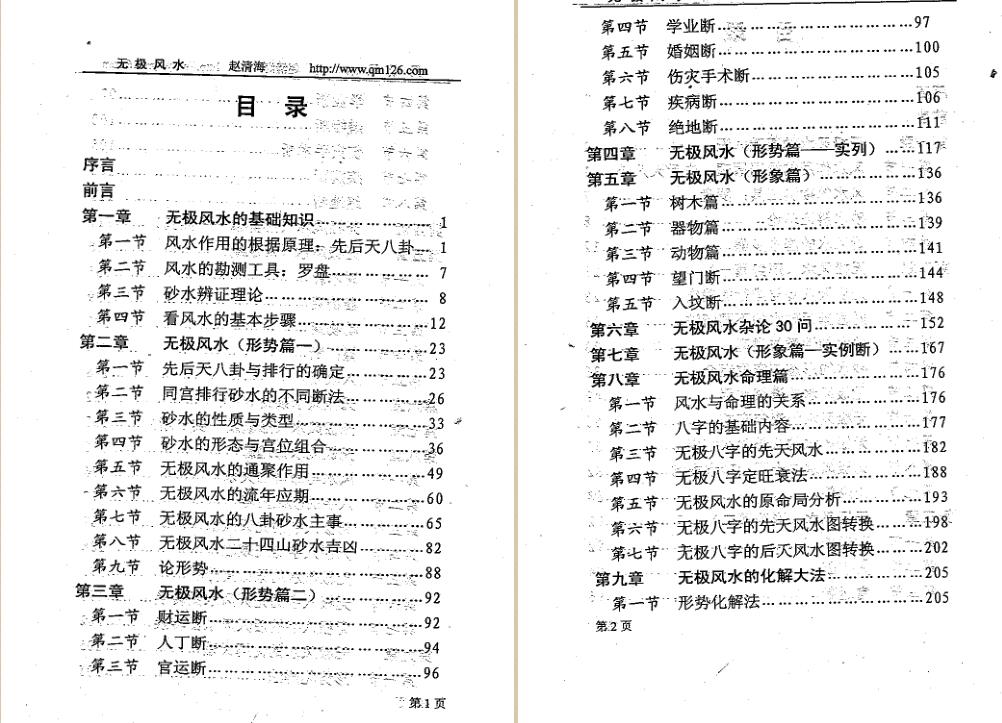 无极风水 赵清海 http://www.qm126.com
目 录
序言
前言
第一章 无极风水的基础知识……………… 1
第一节 风水作用的根据原理：先后天八卦… 1
第二节 风水的勘测工具：罗盘……………… 7
第三节 砂水辨证理论……………………… 8
第四节 看风水的基本步骤…………………12
第二章 无极风水（形势篇一）……………23
第一节 先后天八卦与排行的确定…………23
第二节 同宫排行砂水的不同断法…………26
第三节 砂水的性质与类型…………………33
第四节 砂水的形态与宫位组合……………36
第五节 无极风水的通聚作用………………49
第六节 无极风水的流年应期………………60
第七节 无极风水的八卦砂水主事…………65
第八节 无极风水二十四山砂水吉凶………82
第九节 论形势………………………………88
第三章 无极风水（形势篇二）……………92
第一节 财运断………………………………92
第二节 人丁断………………………………94
第三节 官运断………………………………96
第1页
第四节 学业断………………………………97
第五节 婚姻断………………………………100
第六节 伤灾手术断…………………………105
第七节 疾病断………………………………106
第八节 绝地断………………………………111
第四章 无极风水（形势篇——实列）……117
第五章 无极风水（形象篇）………………136
第一节 树木篇………………………………136
第二节 器物篇………………………………139
第三节 动物篇………………………………141
第四节 望门断………………………………144
第五节 入坟断………………………………148
第六章 无极风水杂论30问………………152
第七章 无极风水（形象篇—实例断）……167
第八章 无极风水命理篇……………………176
第一节 风水与命理的关系…………………176
第二节 八字的基础内容……………………177
第三节 无极八字的先天风水………………182
第四节 无极八字定旺衰法…………………188
第五节 无极风水的原命局分析……………193
第六节 无极八字的先天风水图转换………198
第七节 无极八字的后天风水图转换………202
第九章 无极风水的化解大法………………205
第一节 形势化解法…………………………205
第2页